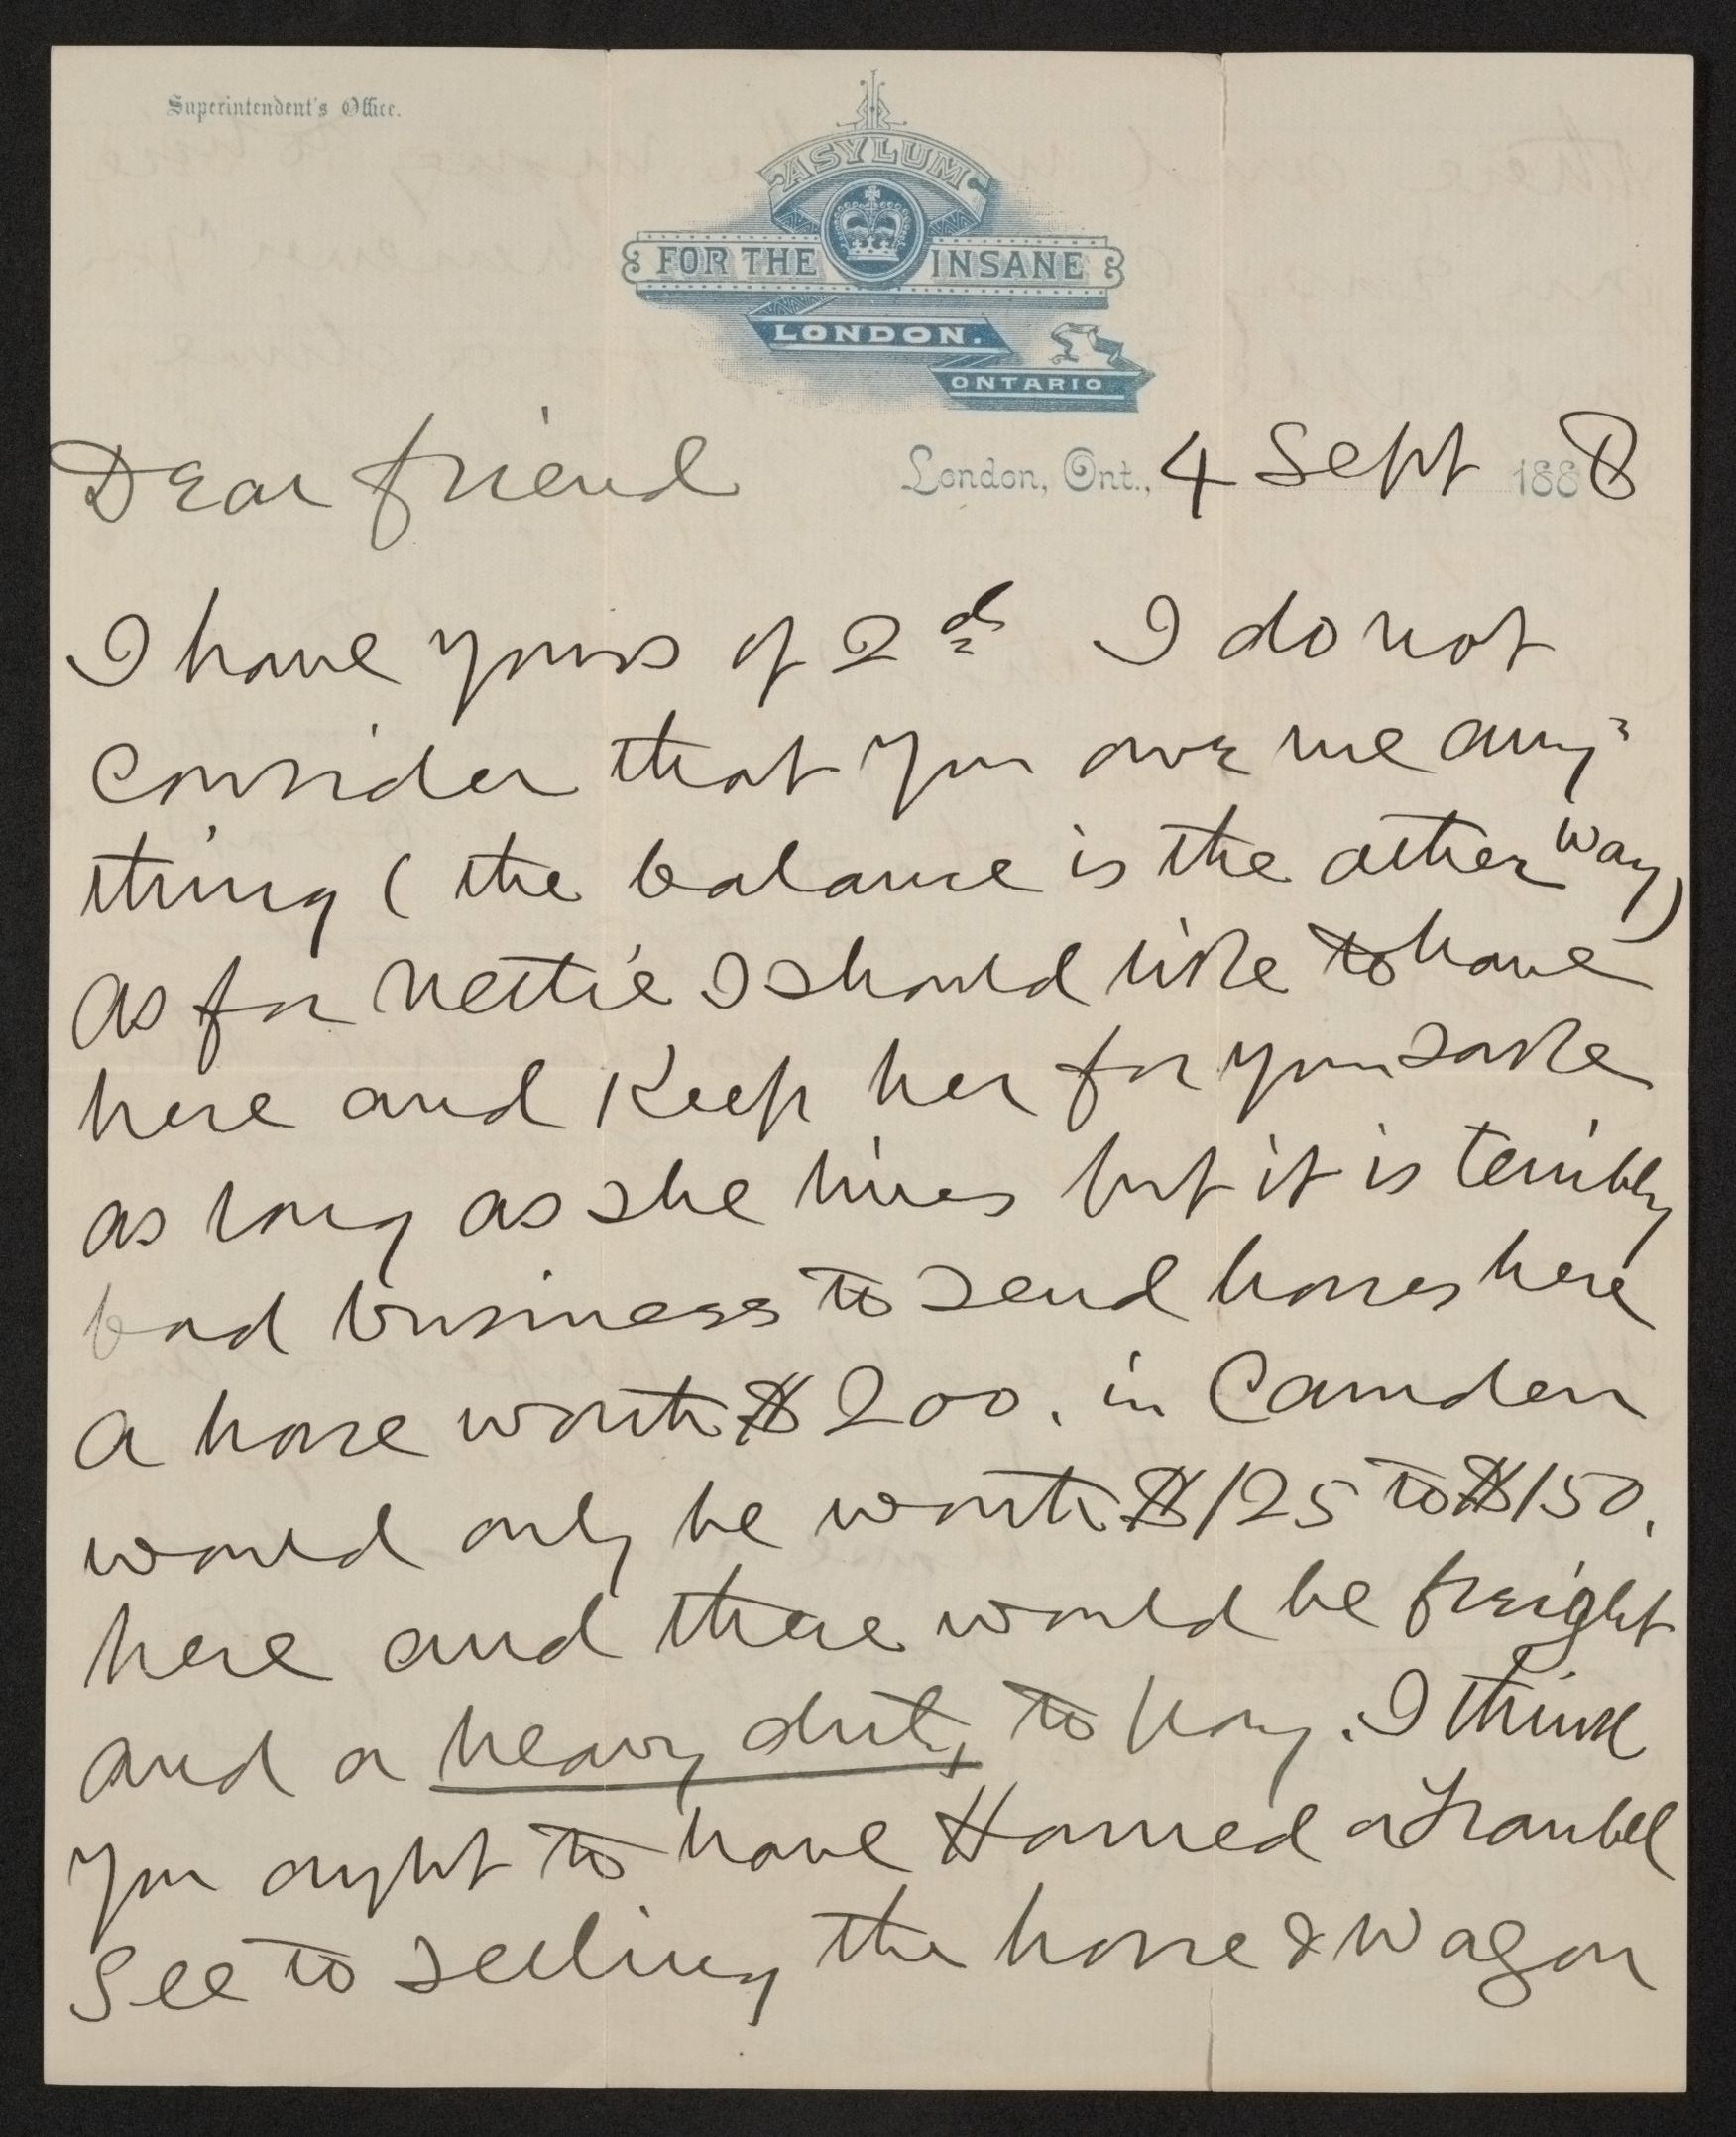 Superintendent's Office.
ASYLUM
FOR THE INSANE
LONDON.
ONTARIO
London, Ont., 4 Sept 1888
Dear friend
I have yours of 2d I do not
consider that you owe me any-
thing (the balance is the other way)
as for Nettie I should like to have
here and Keep her for your sake
as long as she lives but it is terribly
bad business to send horses here
a horse worth $200. in Camden
would only be worth $125 to $150.
here and there would be freight
and a heavy duty to pay. I think
you ought to have Harned or Traubel
see to selling the horse & wagon